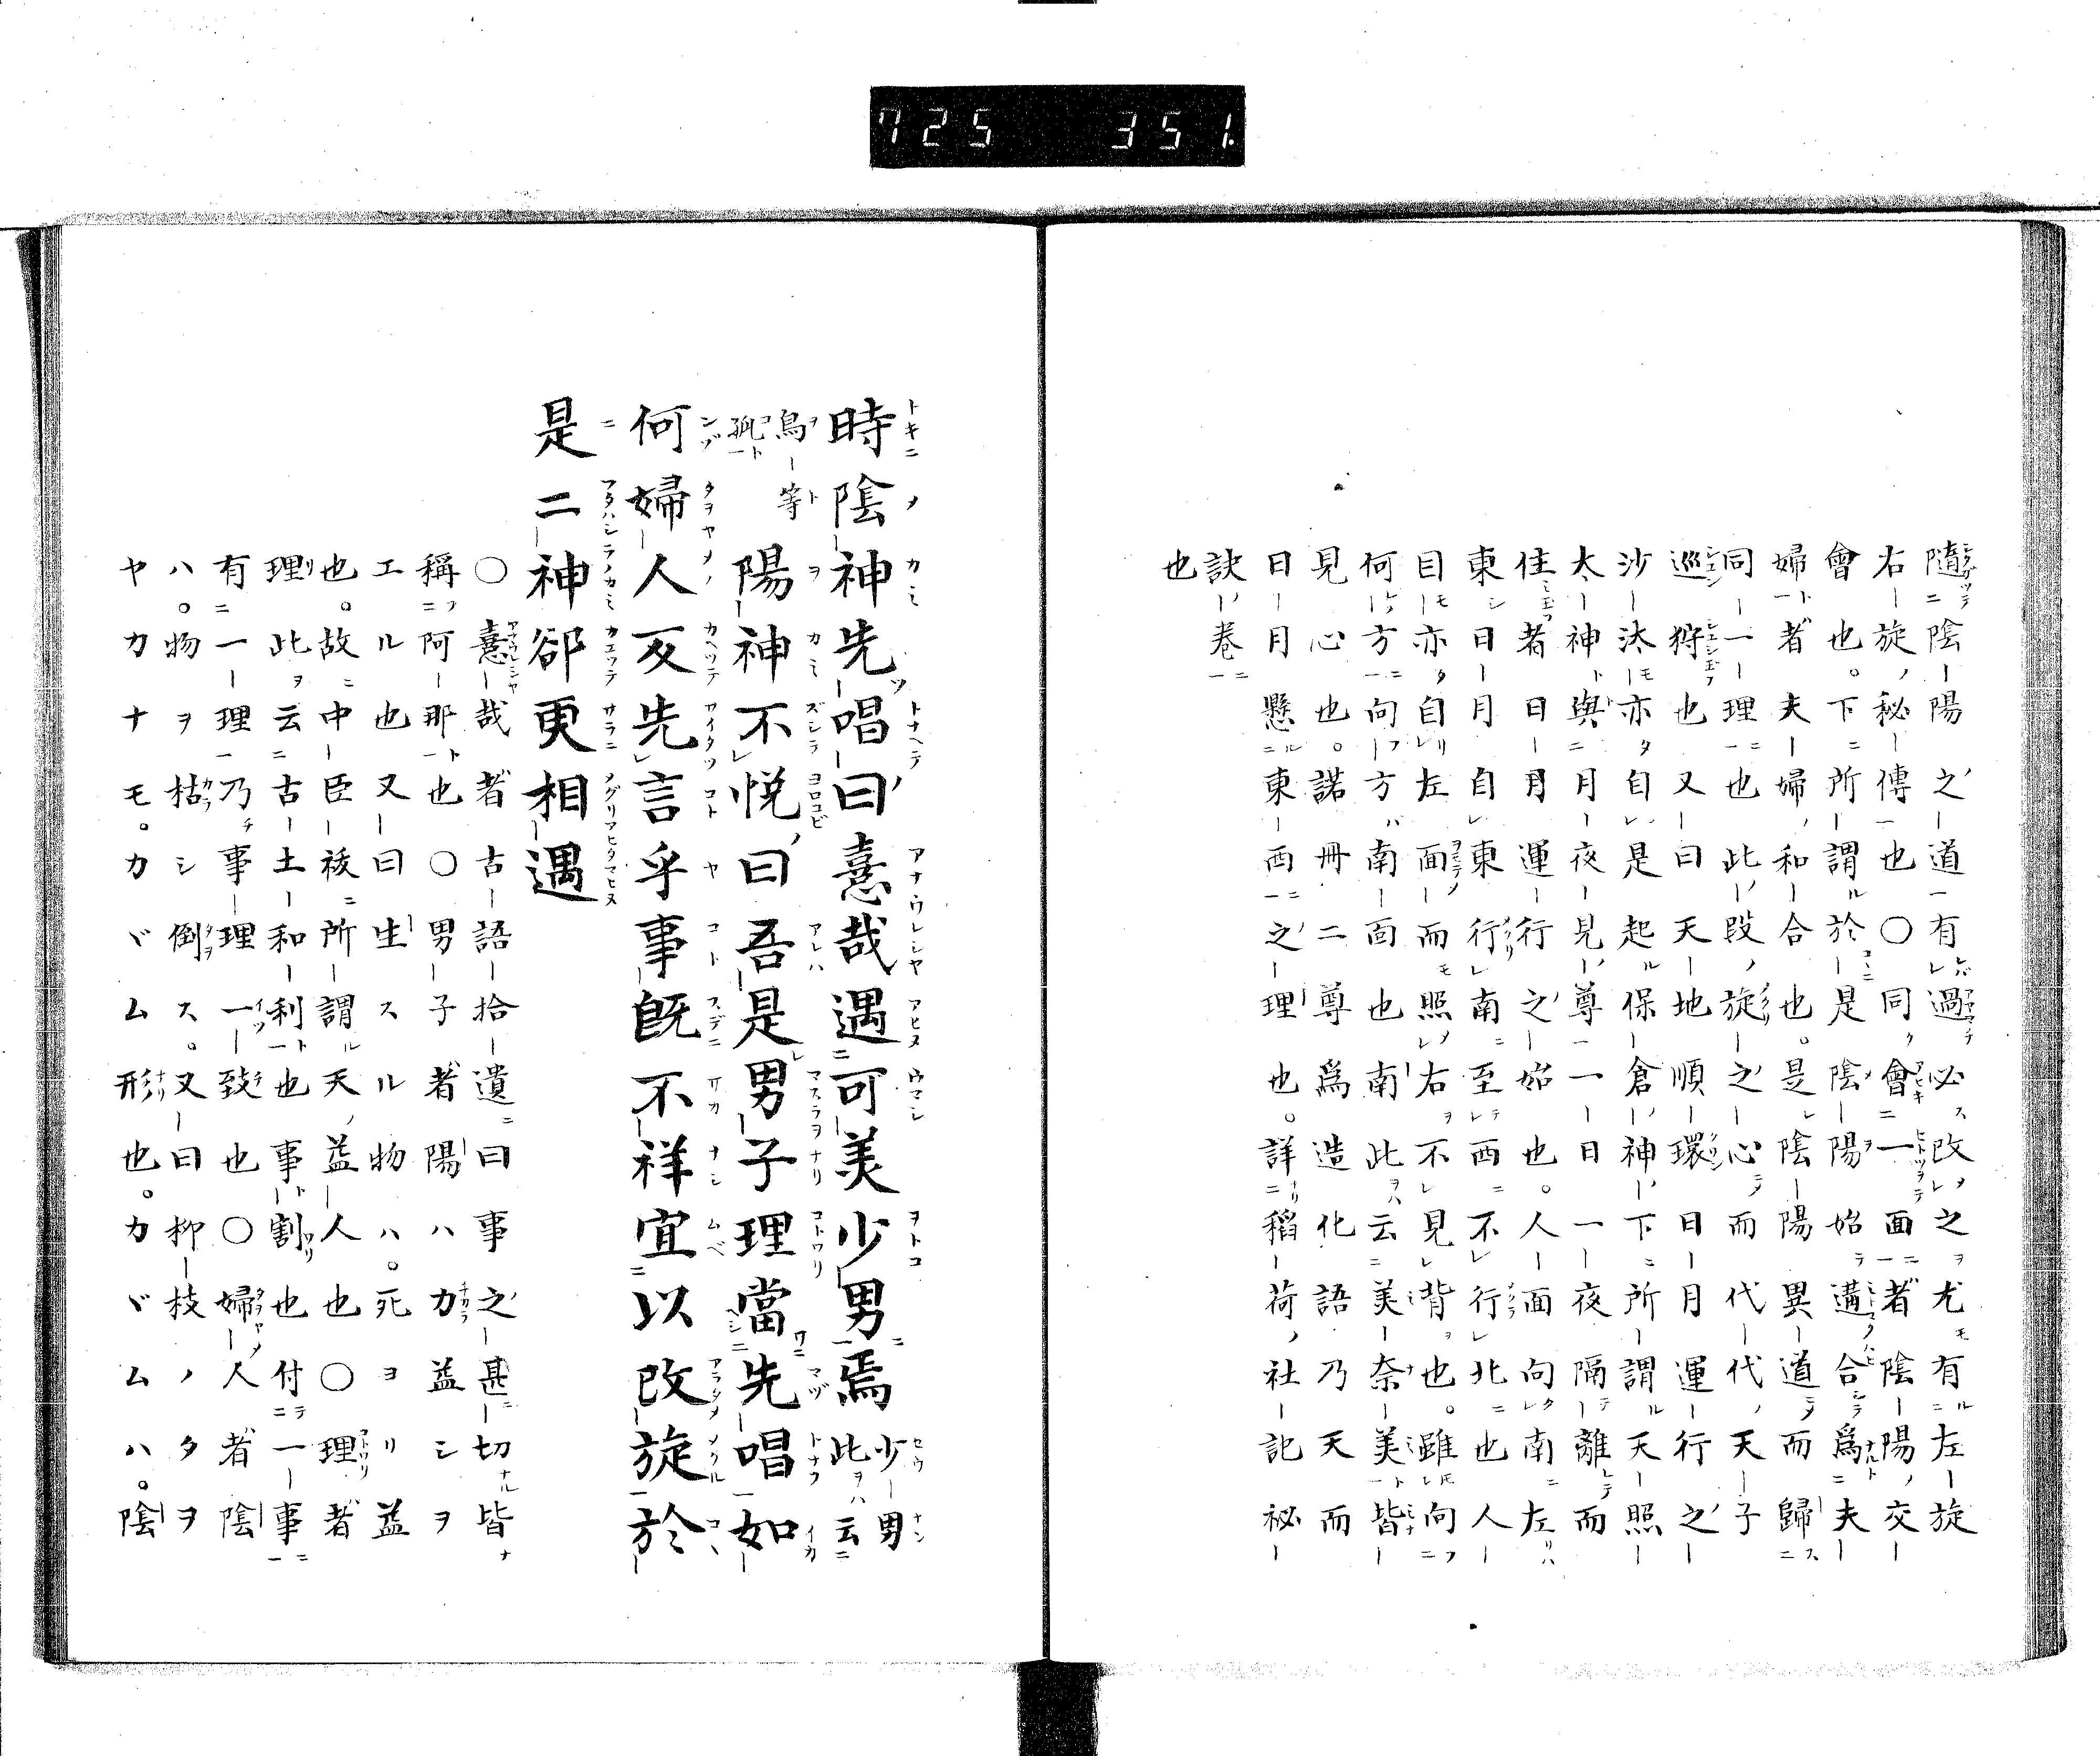 725 351.
隨陰陽之道有過必改之尤有左旋
右旋秘傳也〇同會一面者陰陽交
會也。下所謂於是陰陽始遘合爲夫
婦者夫婦和合也。是陰陽異道而歸
同一理也此段旋之心而代代天子
巡狩也又曰天地順環日月運行之
沙汰亦自是起保倉神下所謂天照
太神與月夜見尊一日一夜隔離而
住者日月運行之始也。人面向南左
東日月自東行南至西不行北也人
目亦自左面而照右不見背也。雖向
何方向方南面也南此云美奈美皆
見心也。諾冊二尊爲造化語乃天而
日月懸東西之理也。詳稻荷社記秘
訣卷一
也
時陰神先唱曰憙哉遇可美少男焉 少男此云
烏等孤 陽神不悅曰吾是男子理當先唱如
何婦人反先言乎事既不祥宜以改旋於
是二神卻更相遇
〇憙哉者古語拾遺曰事之甚切皆
稱阿那也〇男子者陽ハ力益シヲ
エル也又曰生スル物ハ。死ヨリ益
也。故中臣祓所謂天益人也〇理者
理此云古土和利也事割也付一事
有一理乃事理一致也〇婦人者陰
ハ。物ヲ枯シ倒ス。又曰柳枝ノタヲ
ヤカナモ。カヾム形也。カヾムハ。陰